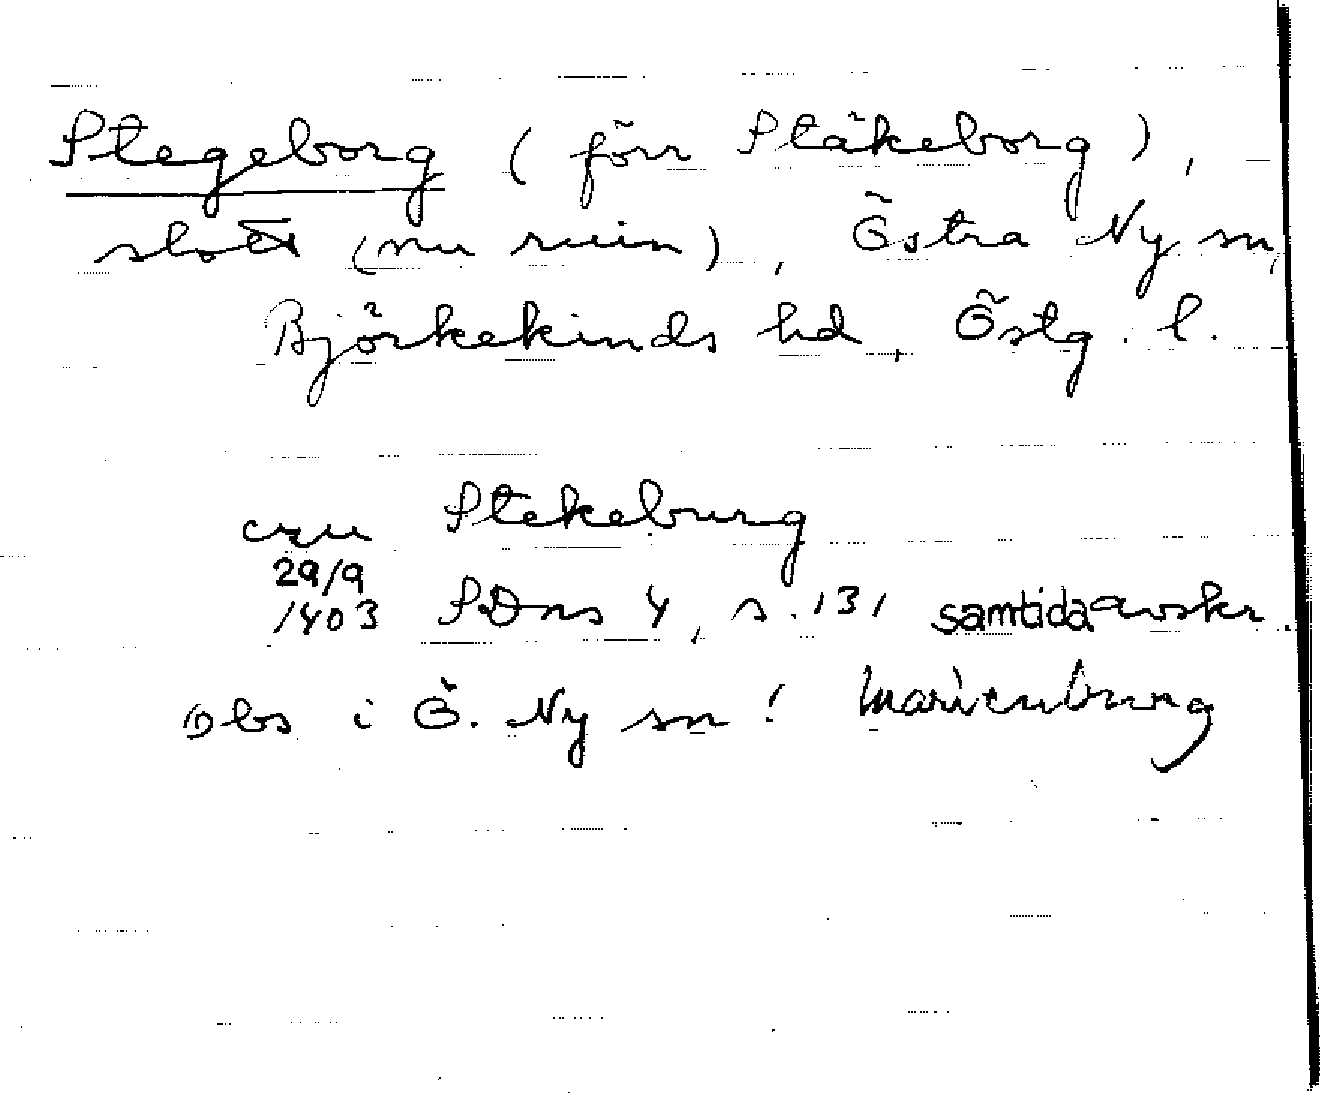 Stegeborg (förr Stäkeborg),
slott (nu ruin), Östra Ny sn,
Björkekinds hd, Östg. l.
czu Stekeburg
29/9
1403 SDns 4, s. 131 samtida avskr.
Obs i Ö. Ny sn! Marienburg